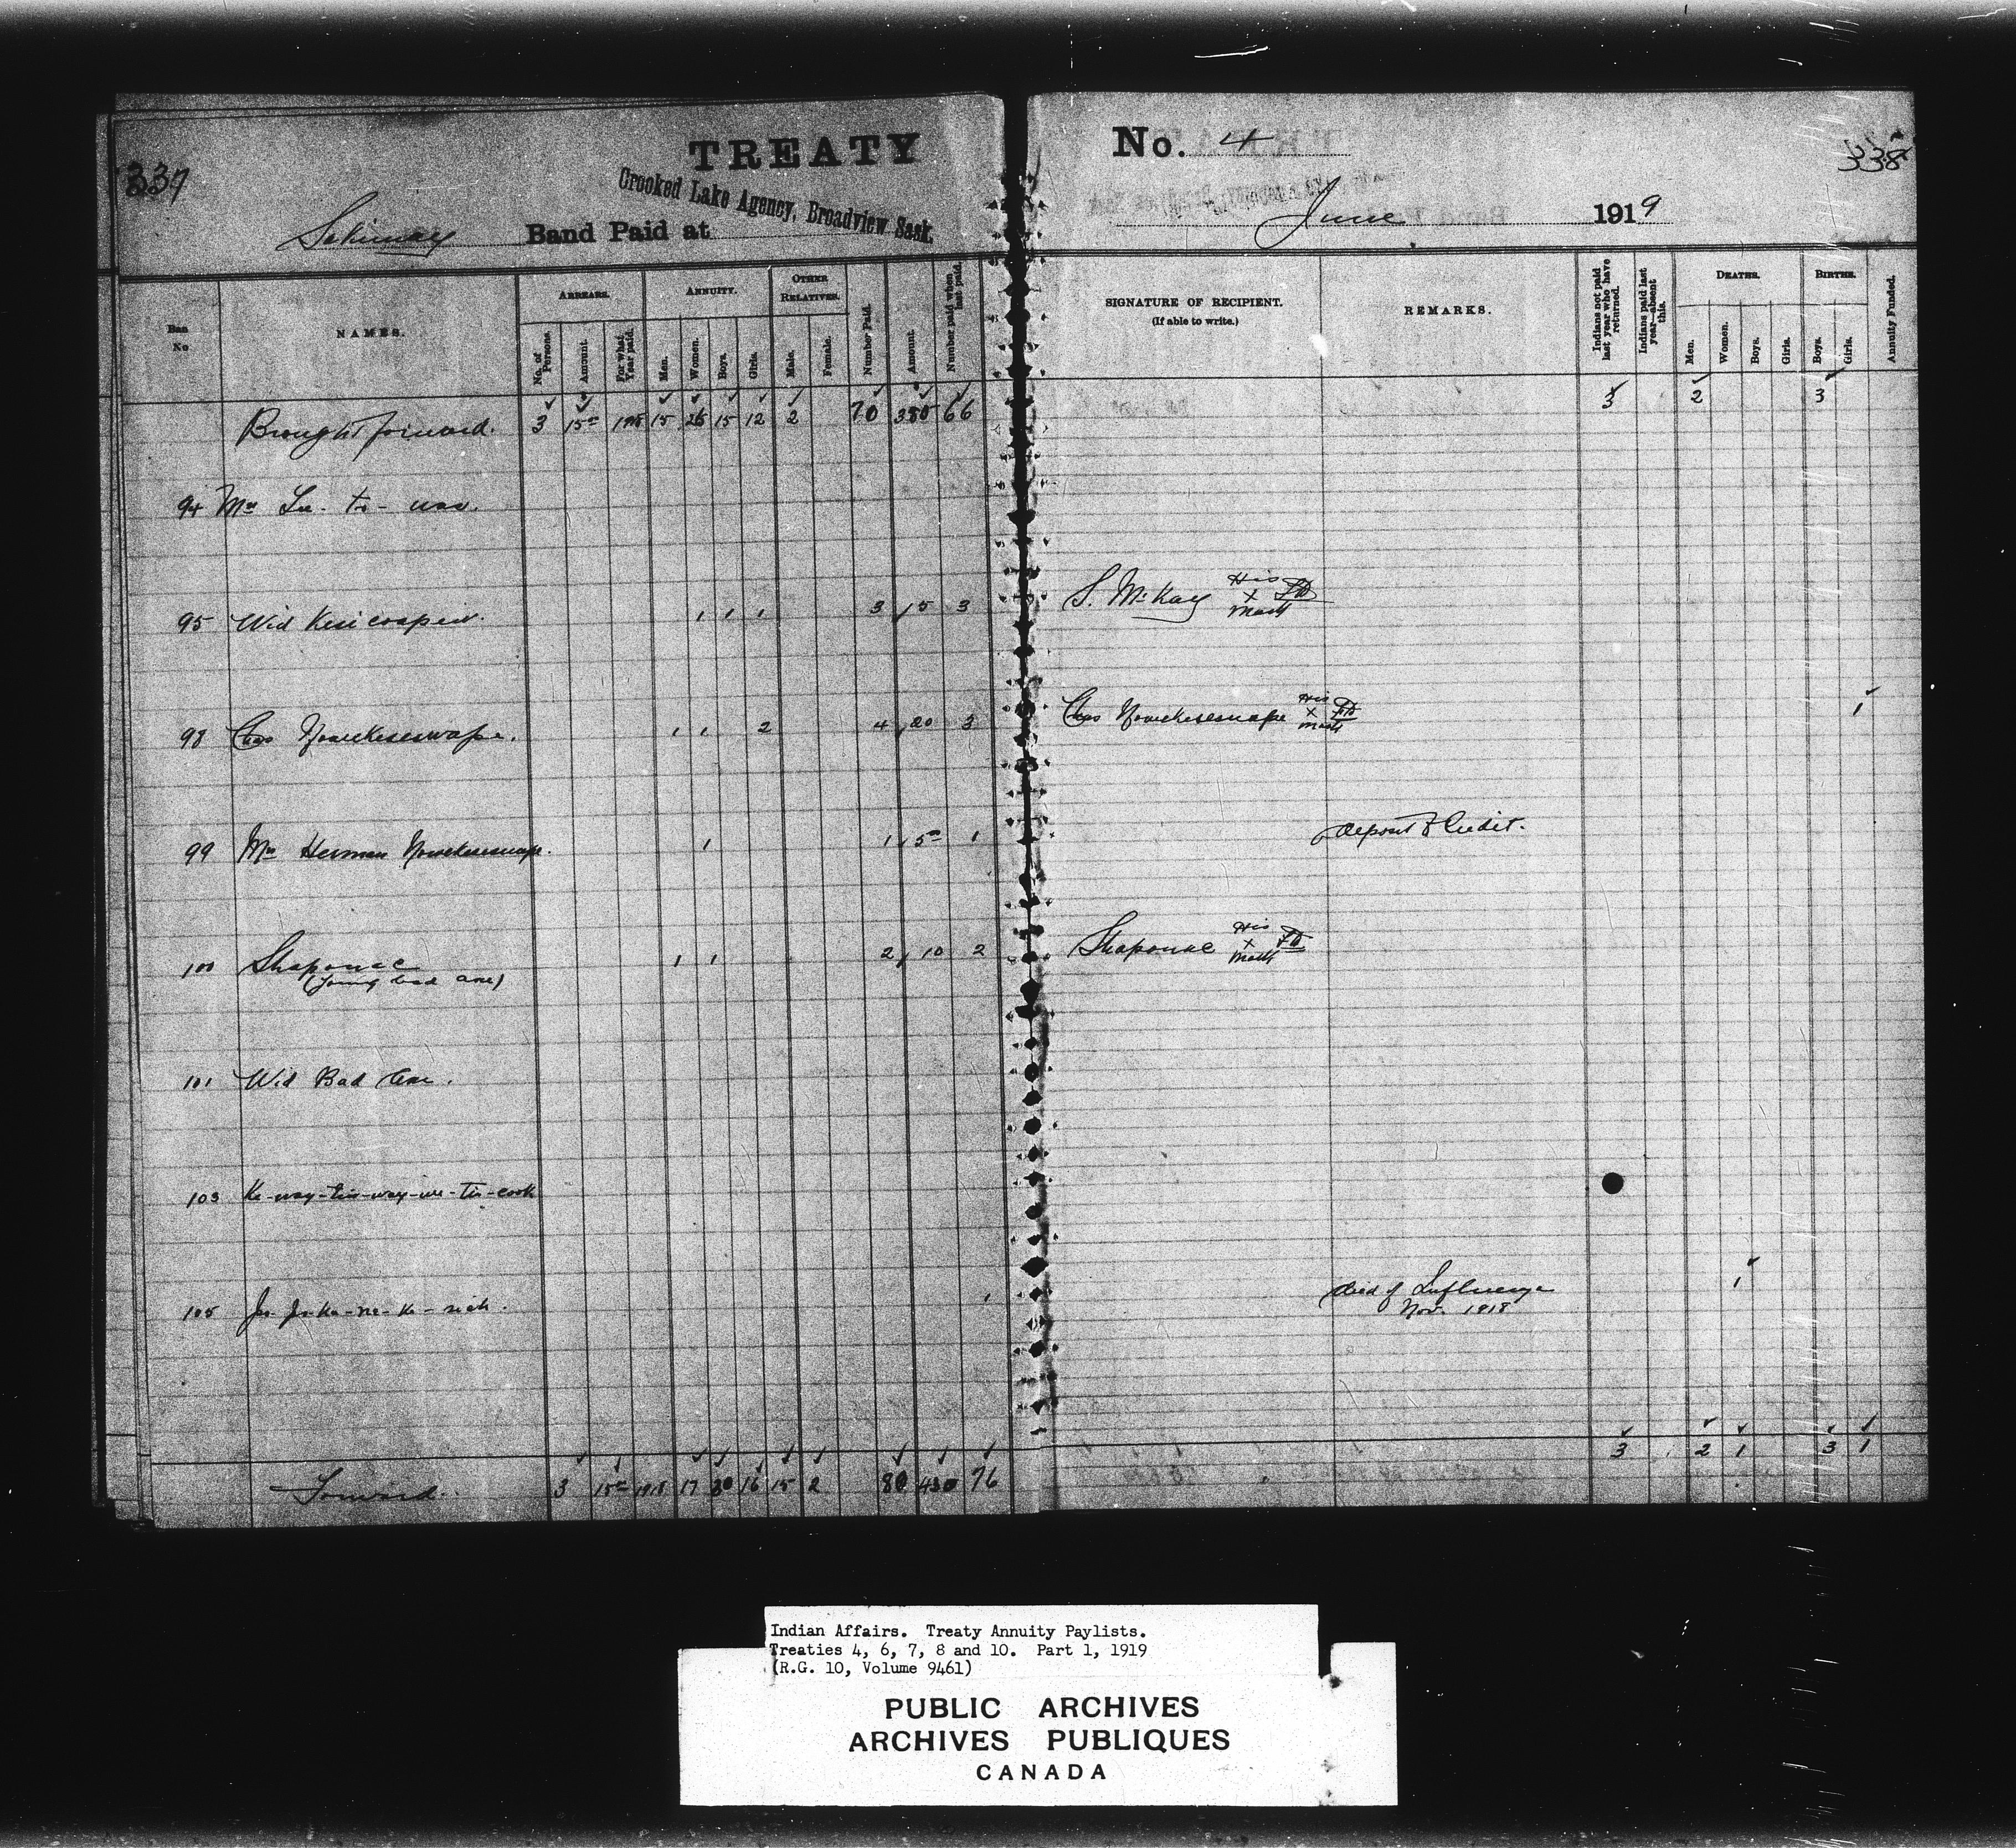 337
TREATY No. 4
338
Crooked Lake Agency, Broadview Sask.
Sakimay Band Paid at
June 1919
Ban No
NAMES.
ARREARS.
No. of Persons.
Amount.
For what Year paid.
ANNUITY.
Men.
Women.
Boys.
Girls.
OTHER RELATIVES.
Male.
Female.
Number Paid.
Amount.
Number paid when last paid.
SIGNATURE OF RECIPIENT.
(If able to write.)
REMARKS.
Indians not paid last year who have returned.
Indians paid last year—absent this.
DEATHS.
Men.
Women.
Boys.
Girls.
BIRTHS.
Boys.
Girls.
Annuity Funded.
Brought forward. 3 15 1918 15 26 15 12 2 70 380 66 3 2 3
94 Mrs
95 Wid Kesicaspew. 1 1 1 3 15 3 S. McKay His x mark
98 Chas Nowekeseswape. 1 1 2 4 20 3 Chas Nowekeseswape His x mark 1
99 Mrs Herman Nowekeseswape. 1 1 5 1 Deposit to Credit.
100 Shaponac 1 1 2 10 2 Shaponac His x mark
(Young bad arm)
101 Wid Bad Arm.
103 Ke-way-tin-way-we-tin-cook
105 1 Died of Influenza 1
Nov. 1918
Forward. 3 15 1918 17 30 16 15 2 80 430 76 3 2 1 3 1
Indian Affairs. Treaty Annuity Paylists.
Treaties 4, 6, 7, 8 and 10. Part 1, 1919
(R.G. 10, Volume 9461)
PUBLIC ARCHIVES
ARCHIVES PUBLIQUES
CANADA